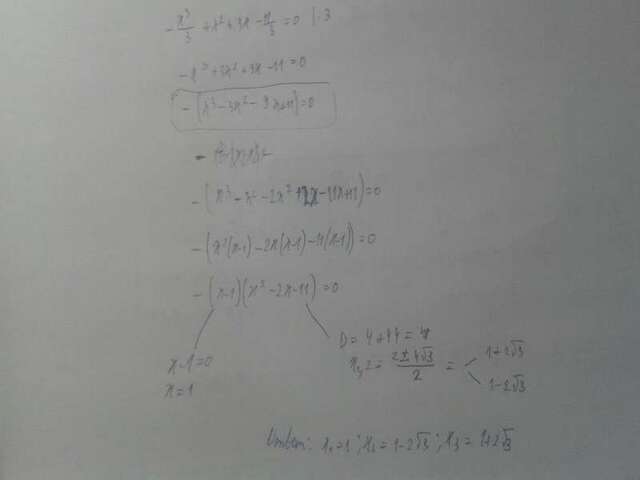 -x³/3 + x² + 3x - 11/3 = 0 | ·3
-x³ + 3x² + 9x - 11 = 0
-(x³ - 3x² - 9x + 11) = 0
-(x³ - x² - 2x² + 2x - 11x + 11) = 0
-(x²(x-1) - 2x(x-1) - 11(x-1)) = 0
-(x-1)(x² - 2x - 11) = 0
x-1=0
x=1
D = 4+44 =
= (2±4√3)/2 =
1+2√3
1-2√3
x₁=1; x₂=1-2√3; x₃=1+2√3